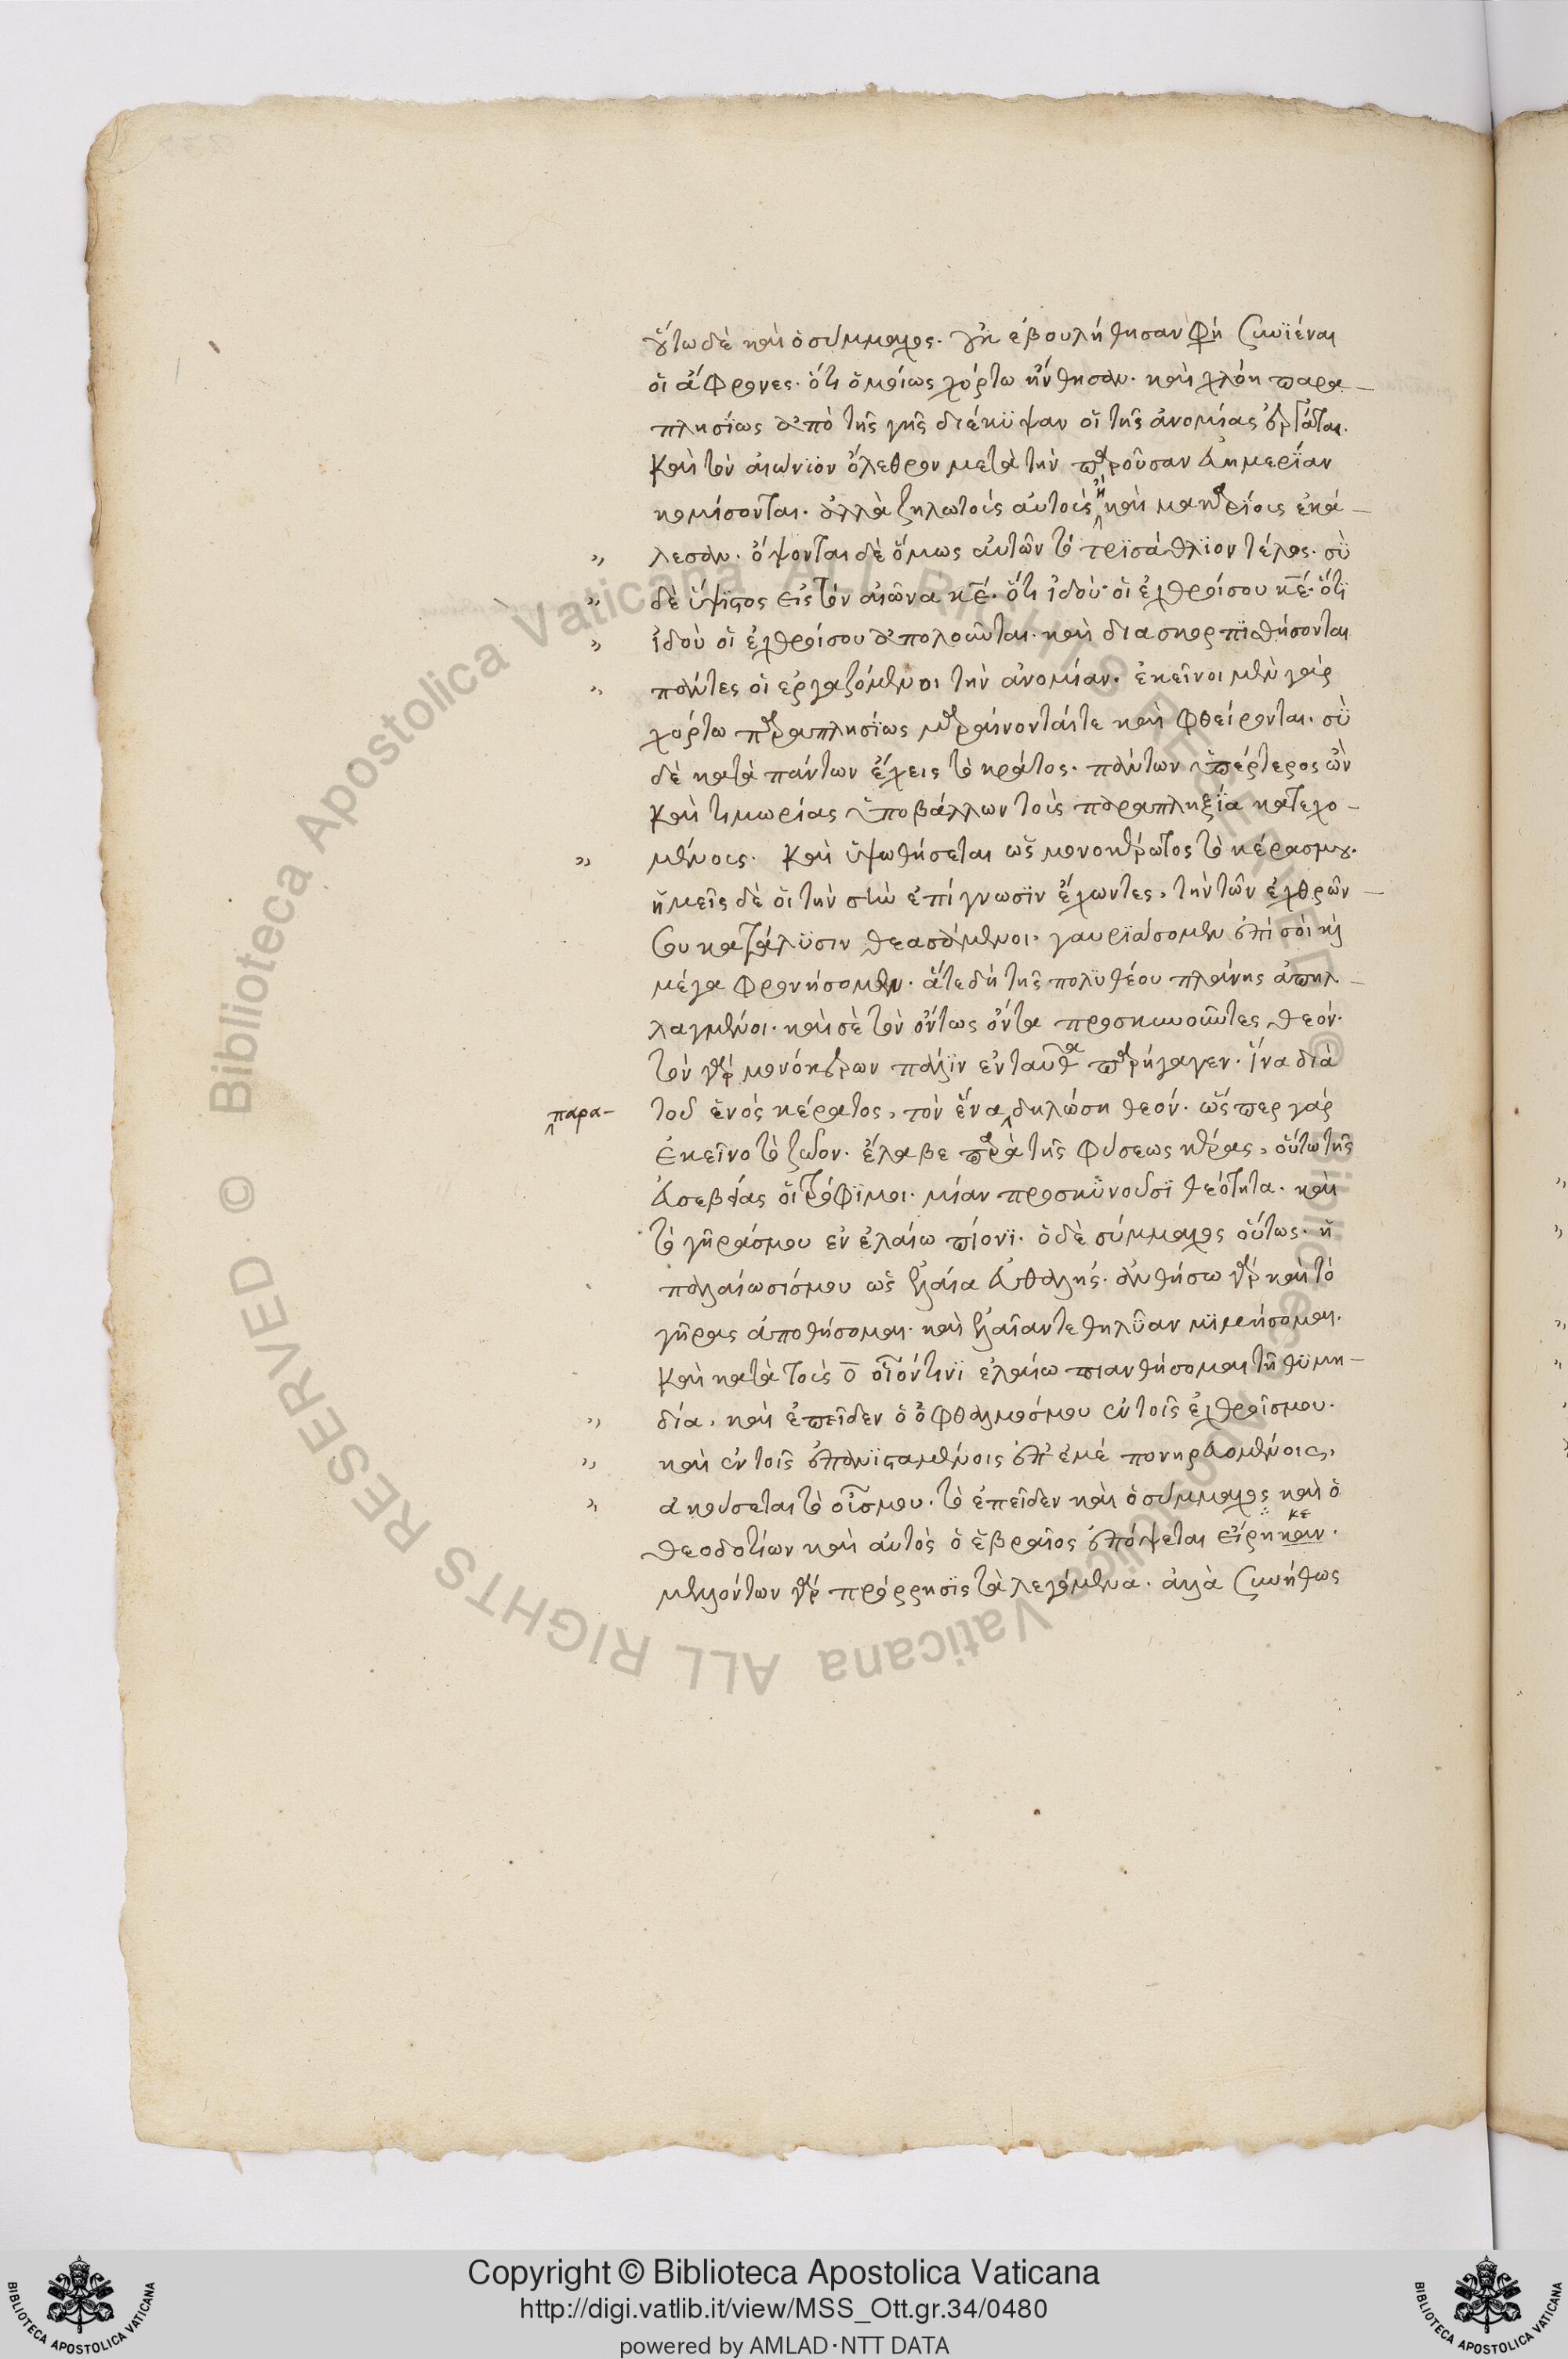 οὕτω δὲ καὶ ὁ σύμμαχος. οὐκ ἐβουλήθησαν φη συνϊέναι
οἱ ἄφρονες. ὅτι ὁμοίως χόρτω ἤνθησαν. καὶ χλόη παρα-
πλησίως ἀπὸ τῆς γῆς διέκυψαν οἱ τῆς ἀνομίας ἐργάται.
καὶ τὸν αἰώνϊον ὄλεθρον μετὰ τὴν παροῦσαν εὐημερίαν
κομίσονται. ἀλλὰ ζηλωτοὶς αὐτοὶς ἢ καὶ μακαρίοις ἐκά-
" λεσαν. ὄψονται δὲ ὅμως αὐτῶν τὸ τρϊσάθλϊον τέλος. σὺ
" δὲ ὕψιστος εἰς τὸν αἰῶνα κε. ὅτι ἰδοὺ οἱ ἐχθροί σου κε. ὅτι
" ἰδοὺ οἱ ἐχθροί σου ἀπολοῦνται. καὶ διασκορπϊσθήσονται
" πάντες οἱ εργαζόμενοι τὴν ἀνομίαν. ἐκεῖνοι μὲν γὰρ
χόρτω παραπλησίως μαραίνονταί τε καὶ φθείρονται. σὺ
δὲ κατὰ πάντων ἔχεις τὸ κράτος. πάντων ὑπέρτερος ὢν
καὶ τιμωρίας ὑποβάλλων τοὶς παραπληξία κατεχο-
" μένοις. καὶ ὑψωθήσεται ὡς μονοκέρωτος τὸ κέρας μου.
ἡμεῖς δὲ οἱ τὴν σὴν ἐπίγνωσϊν ἔχωντες, τὴν τῶν ἐχθρῶν
σου κατάλϋσιν θεασάμενοι. γαυρϊάσομεν ἐπὶ σοὶ κὶ
μέγα φρονήσομεν. ἅτε δὴ τῆς πολϋθέου πλάνης ἀπηλ-
λαγμένοι. καὶ σὲ τὸν ὄντως ὄντα προσκυνοῦντες θεόν.
τὸν γὰρ μονόκερων πάλϊν ἐνταῦθα παρήγαγεν. ἵνα διὰ
παρα- τοῦ ἑνὸς κέρατος, τὸν ἕνα δηλώση θεόν. ὥσπερ γὰρ
ἐκεῖνο τὸ ζῶον. ἔλαβε παρὰ τῆς φύσεως κέρας, οὕτω τῆς
εὐσεβείας οἱ τρόφϊμοι. μίαν προσκϋνοῦσϊ θεότητα. καὶ
τὸ γῆρας μου ἐν ἐλαίω πίονϊ. ὁ δὲ σύμμαχος οὕτως. ἡ
παλαίωσίς μου ὡς ἐλαία εὐθαλής. ἀνθήσω γὰρ καὶ τὸ
γῆρας ἀποθήσομαι. καὶ ἐλαῖαν τεθηλϋῖαν μϊμήσομαι.
καὶ κατὰ τοὺς ο οἱονtινϊ ἐλαίω πιανθήσομαι τῆ θϋμη-
" δία. καὶ ἐπεῖδεν ὁ ὀφθαλμός μου ἐν τοῖς ἐχθροῖς μου.
" καὶ ἐν τοῖς ἐπανϊσταμένοις ἐπ' ἐμὲ πονηρευομένοις,
" ἀκούσεται τὸ οὖς μου. τὸ ἐπεῖδεν καὶ ὁ σύμμαχος καὶ ὁ
θεοδοτίων καὶ αὐτὸς ὁ ἑβραῖος ἐπόψεται εἰρήκαν.
μελλόντων γὰρ πρόρρησϊς τὰ λεγόμενα. ἀλλὰ συνήθως
Copyright © Biblioteca Apostolica Vaticana
http://digi.vatlib.it/view/MSS_Ott.gr.34/0480
powered by AMLAD·NTT DATA
BIBLIOTECA APOSTOLICA VATICANA
BIBLIOTECA APOSTOLICA VATICANA
© Biblioteca Apostolica Vaticana ALL RIGHTS RESERVED
© Biblioteca Apostolica Vaticana ALL RIGHTS RESERVED